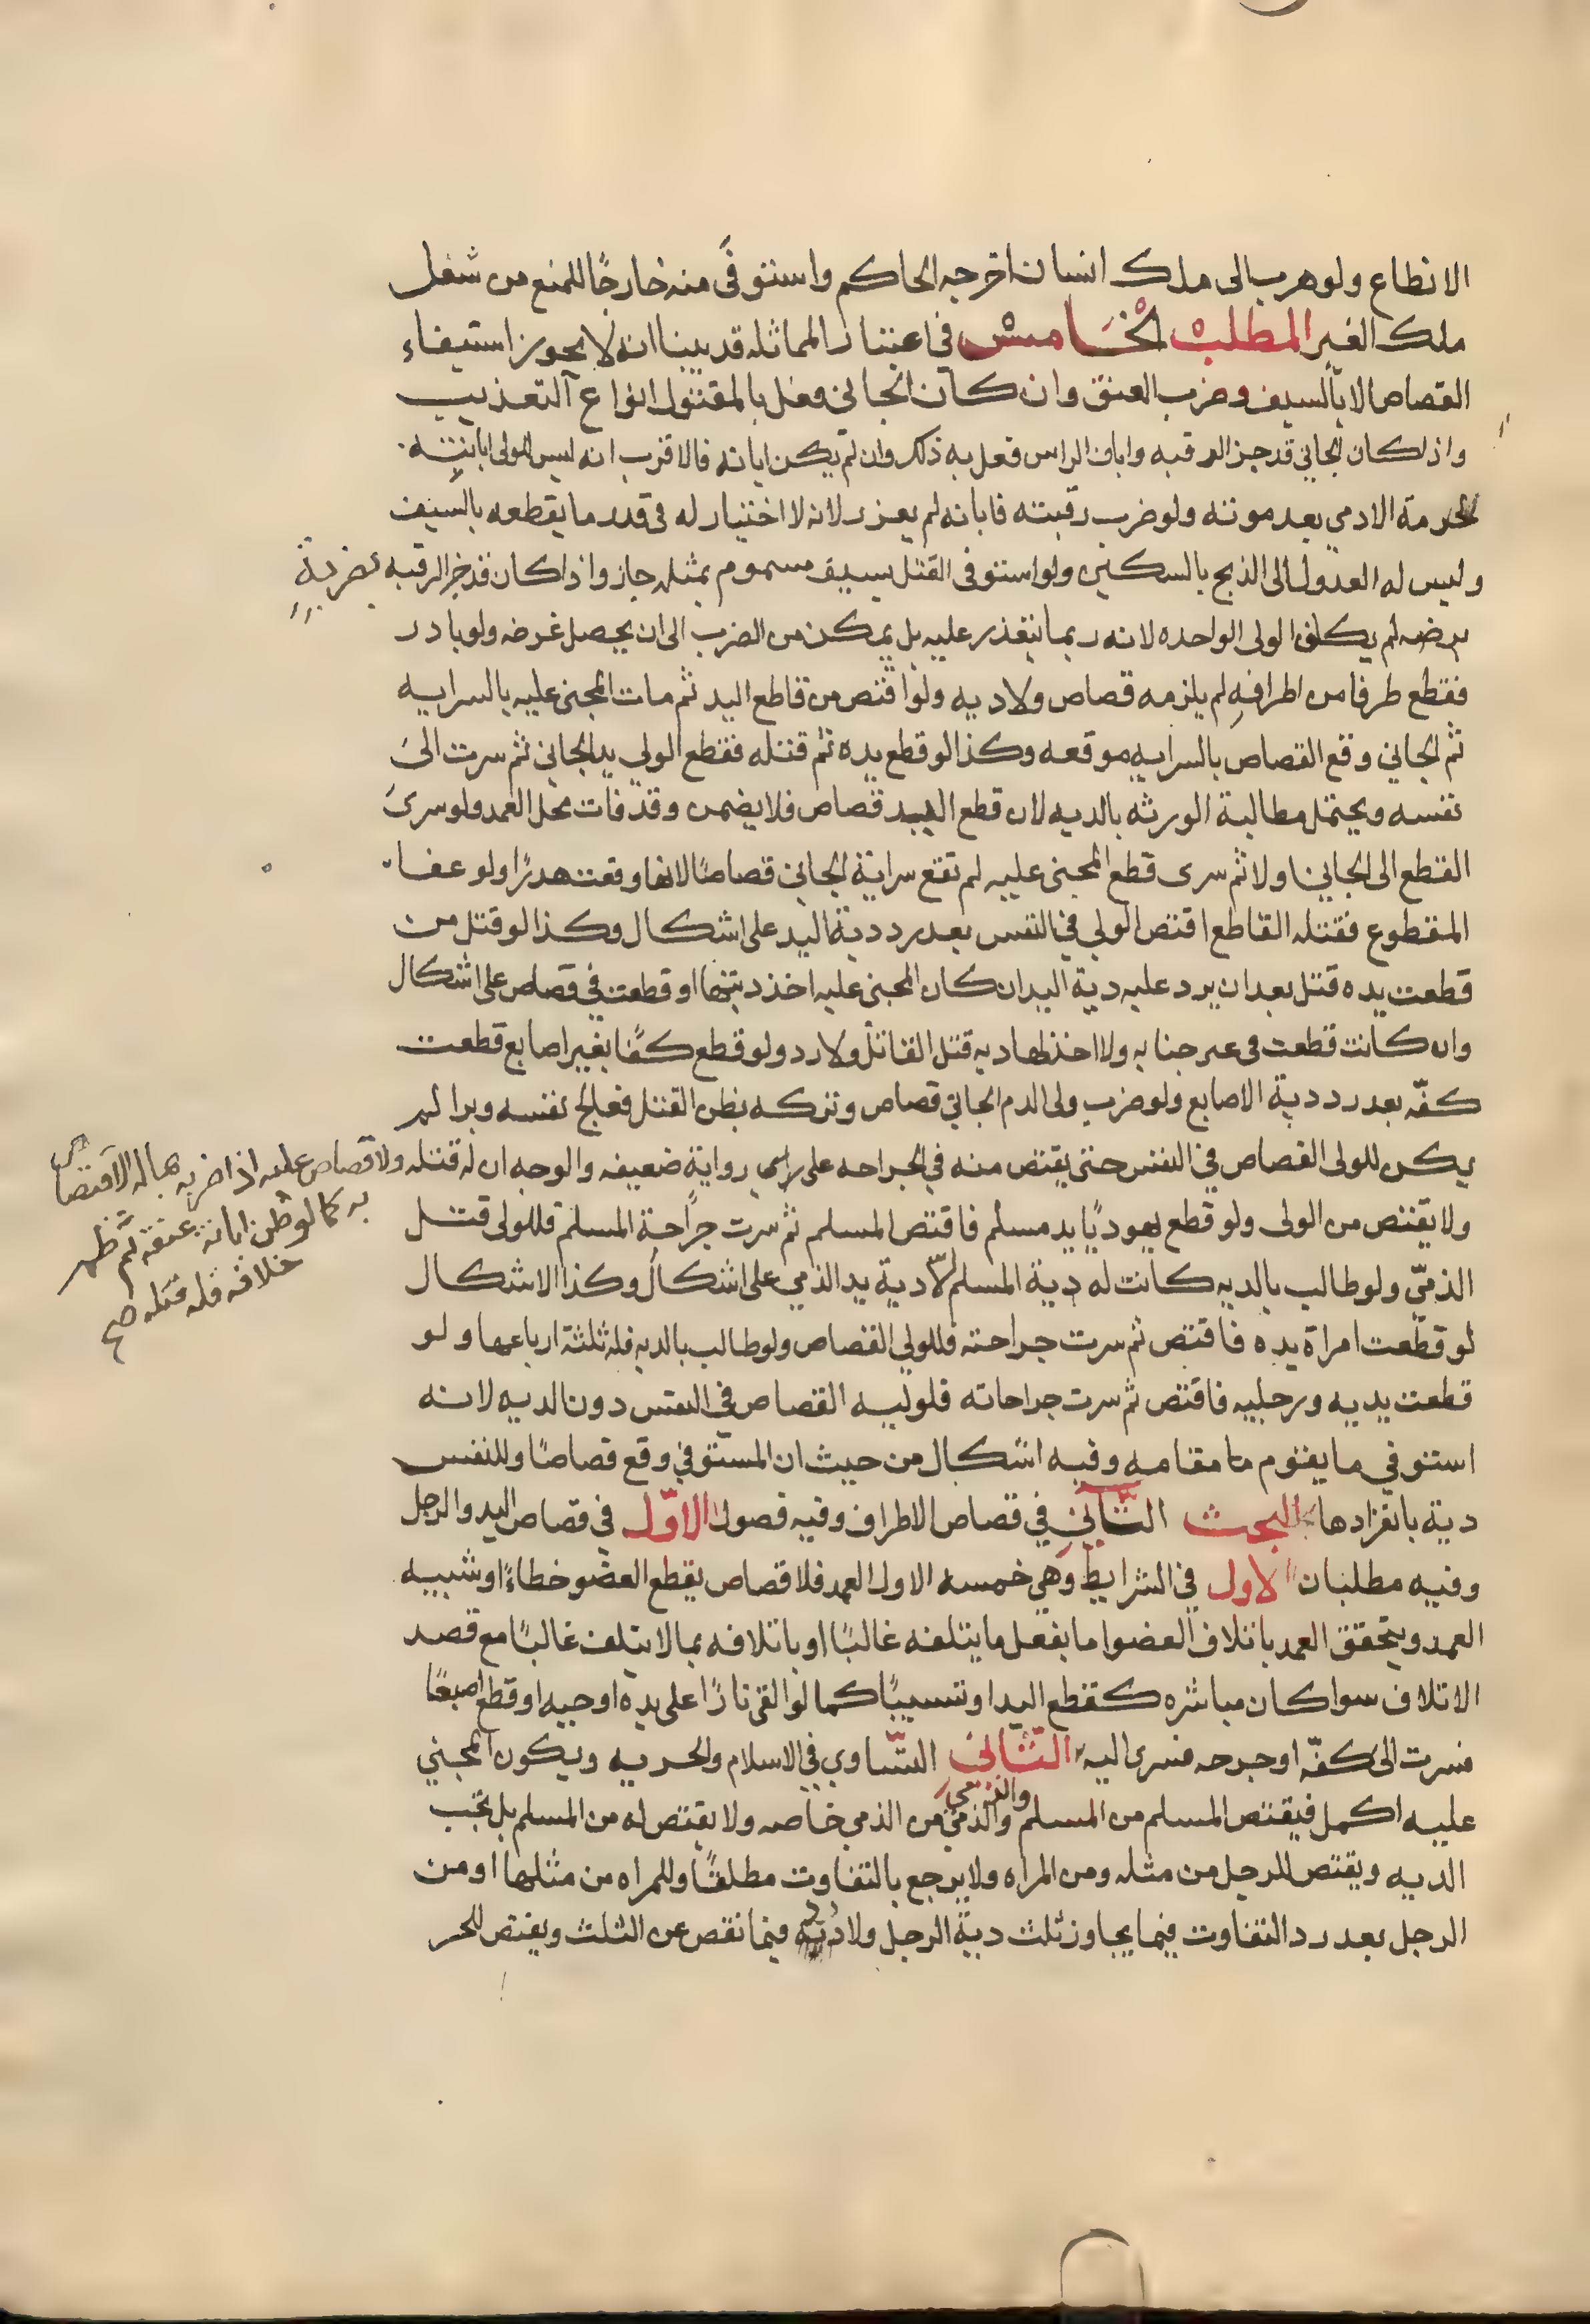 الانطاع ولو هرب الى ملك انسان اخرجه الحاكم واستوفَى منه خارجًا للمنع من شغل
ملك الغير المطلب الخامس في اعتبار المماثله قد بينا انه لا يجوز استيفاء
القصاص الا بالسيف وضرب العنق وان كان الجاني فعل بالمقتول انواع التعذيب
واذا كان الجاني قد جز الرقبه وابان الراس فعل به ذلك وان لم يكن ابانه فالاقرب انه ليس للولى ابانته
لحرمة الادمي بعد موته ولو ضرب رقبته فابانه لم يعزر لانه لا اختيار له في قدر ما يقطعه بالسيف
وليس له العدول الى الذبح بالسكين ولو استوفى القتل بسيف مسموم بمثله جاز واذا كان قد جز الرقبه بضربةٍ
لم يكلف الولى الواحده لانه ربما يتعذر عليه بل يمكن من الضرب الى ان يحصل غرضه ولو بادر
فقطع طرفا من اطرافهِ لم يلزمه قصاص ولا ديه ولو اقتص من قاطع اليد ثم مات المجنى عليه بالسرايه
ثم الجاني وقع القصاص بالسرايه موقعه وكذا لو قطع يده ثم قتله فقطع الولي يد الجاني ثم سرت الى
نفسه ويحتمل مطالبة الورثه بالديه لان قطع اليد قصاص فلا يضمن وقد فات محل العمد ولو سرى
القطع الى الجاني اولا ثم سرى قطع المجنى عليه لم تقع سراية الجاني قصاصًا لانها وقعت هدرًا ولو عفا
المقطوع فقتله القاطع اقتص الولي في النفس بعد رد دية اليد على اشكال وكذا لو قتل من
قطعت يده قتل بعد ان يرد عليه دية اليد ان كان المجنى عليه اخذ ديتها او قطعت في قصاص على اشكال
وان كانت قطعت في غير جنايه ولا اخذ لها ديه قتل القاتل ولا رد ولو قطع كفًا بغير اصابع قطعت
كفّه بعد رد دية الاصابع ولو ضرب ولى الدم الجاني قصاص وتركه بظن القتل فعالج نفسه وبرا لم
يكن للولى القصاص في النفس حتى يقتص منه في الجراحه على راي رواية ضعيفه والوجه ان له قتله ولا قصاص عليه اذا ضربه بما له الاقتصاص
به كما لو ظن ابانة عنقه ثم ظهر
خلافه فله قتله صح
ولا يقتص من الولى ولو قطع يهوديًا يد مسلم فاقتص المسلم ثم سرت جراحة المسلم فللولى قتل
الذميّ ولو طالب بالديه كانت له دية المسلم الّا دية يد الذمي على اشكال وكذا الاشكال
لو قطعت امراة يده فاقتص ثم سرت جراحته فللولي القصاص ولو طالب بالديه فله ثلثة ارباعها ولو
قطعت يديه ورجليه فاقتص ثم سرت جراحاته فلوليه القصاص في النفس دون الديه لانه
استوفي ما يقوم مقامه وفيه اشكال من حيث ان المستوفي وقع قصاصًا وللنفس
دية بانفرادها البحث الثاني في قصاص الاطراف وفيه فصول الاوّل في قصاص اليد والرجل
وفيه مطلبان الاول في الشرايط وهي خمسه الاول العمد فلا قصاص بقطع العضو خطاءً او شبيه
العمد ويتحقق العمد باتلاف العضو اما بفعل ما يتلفه غالبًا او باتلافه بما لا يتلف غالبًا مع قصد
الاتلاف سوا كان مباشره كقطع اليد او تسبيبًا كما لو القى نارًا على يده او حيه او قطع اصبعًا
فسرت الى كفّه او جرحه فسرى اليه الثاني التساوي في الاسلام والحريه ويكون المجني
عليه اكمل فيقتص المسلم من المسلم والذمي من الذمي خاصه ولا يقتص له من المسلم بل تجب
الديه ويقتص للرجل من مثله ومن المراه ولا يرجع بالتفاوت مطلقًا وللمراه من مثلها او من
الرجل بعد رد التفاوت فيما يجاوز ثلث دية الرجل ولا فيما نقص عن الثلث ويقتص للحر